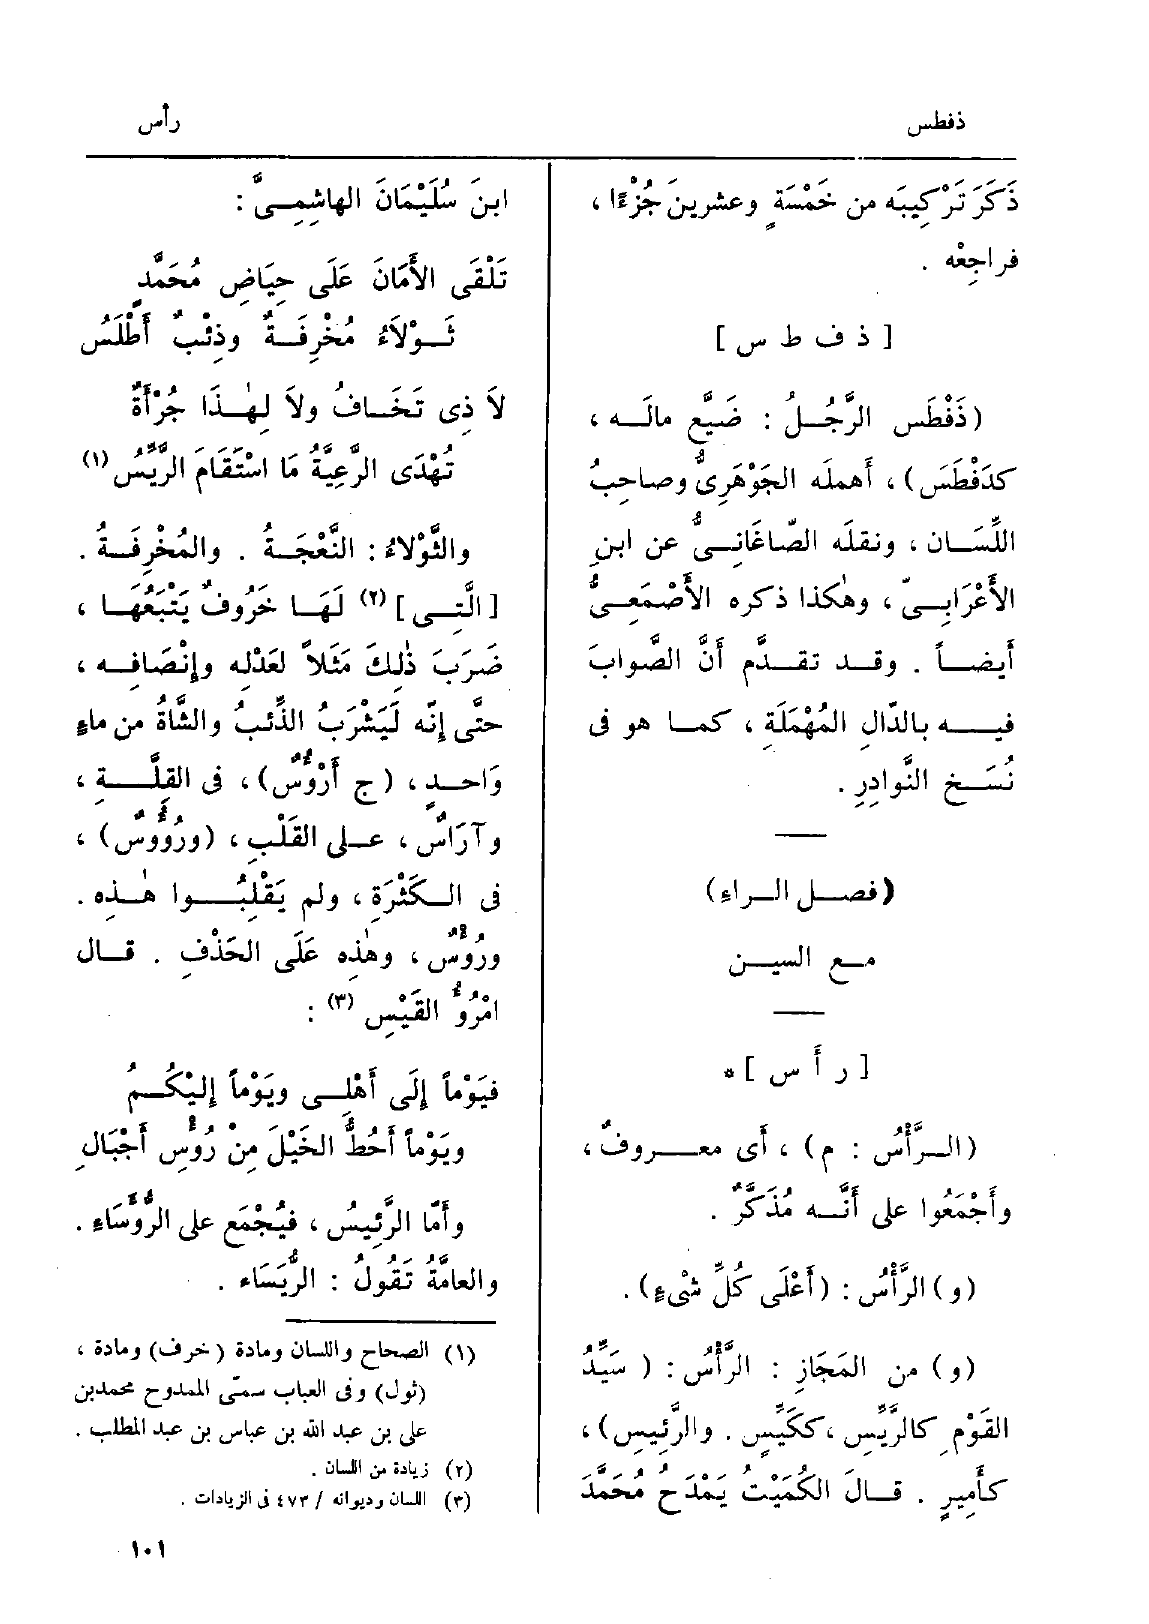 ذفطس
رأس
ذَكَرَ تَرْكِيبَه من خَمْسَةٍ وعشرينَ جُزْءًا ،
فراجِعْه .
[ ذ ف ط س ]
(ذَفْطَس الرَّجُـلُ : ضَيَّع مالَـه ،
كدَفْطَسَ) ، أهمله الجَوْهَرِىُّ وصاحِبُ
اللِّسَـان ، ونقلَه الصّاغَانِـىُّ عن ابنِ
الأَعْرَابِـىّ ، وهٰكذا ذكره الأَصْمَعِـىُّ
أَيضـاً . وقـد تقـدَّم أَنَّ الصَّوابَ
فيـه بالدّالِ المُهْمَلَةِ ، كمـا هو فى
نُسَـخ النَّوادِرِ .
(فصـل الـراءِ)
مـع السيـن
[ ر أ س ] *
(الـرَّأْسُ : م) ، أَى معـروفٌ ،
وأَجْمَعُوا على أَنَّـه مُذَكَّرٌ .
(و) الرَّأْسُ : (أَعْلَى كُلِّ شَىْءٍ) .
(و) من المَجَازِ : الرَّأْسُ : ( سَيِّدُ
القَوْمِ كالرَّيِّس ، ككَيِّسٍ . والرَّئِيسِ) ،
كأَمِيرٍ . قـالَ الكُمَيْتُ يَمْدَحُ مُحَمَّدَ
ابنَ سُلَيْمَانَ الهاشِمِـىَّ :
تَلْقَى الأَمَانَ عَلَى حِيَاضِ مُحَمَّدٍ
ثَـوْلاَءُ مُخْرِفَـةٌ وذِئْبٌ أَطْلَسُ
لاَ ذِى تَخَـافُ ولاَ لِهٰـذَا جُرْأَةٌ
تُهْدَى الرَّعِيَّةُ مَا اسْتَقَامَ الرَّيِّسُ (١)
والثَّوْلاءُ : النَّعْجَـةُ . والمُخْرِفَـةُ .
[ الَّتِـى ] (٢) لَهَـا خَرُوفٌ يَتْبَعُهَـا ،
ضَرَبَ ذٰلِكَ مَثَلاً لعَدْلِه وإِنْصَافِـه ،
حتَّى إِنّه لَيَشْرَبُ الذِّئبُ والشَّاةُ من ماءٍ
وَاحـدٍ ، (ج أَرْؤُسٌ) ، فى القِلَّـةِ ،
وآرَاسٌ ، عـلى القَلْبِ ، (ورُؤُوسٌ) ،
فى الـكَثْرَةِ ، ولم يَقْلِبُـوا هٰـذِه .
ورُؤْسٌ ، وهٰذِه عَلَى الحَذْفِ . قـال
امْرُؤُ القَيْسِ (٣) :
فيَوْماً إِلَى أَهْلِـى ويَوْماً إِلَيْكُـمُ
ويَوْماً أَحُطُّ الخَيْلَ مِنْ رُؤْسِ أَجْبَالِ
وأَمّا الرَّئِيسُ ، فيُجْمَع على الرُّؤَسَاءِ .
والعامَّةُ تَقُولُ : الرُّيَسَاء .
(١) الصحاح واللسان ومادة (خرف) ومادة ،
(ثول) وفى العباب سمّى الممدوح محمدبن
على بن عبد الله بن عباس بن عبد المطلب .
(٢) زيادة من اللسان .
(٣) اللسان وديوانه / ٤٧٣ فى الزيادات .
١٠١